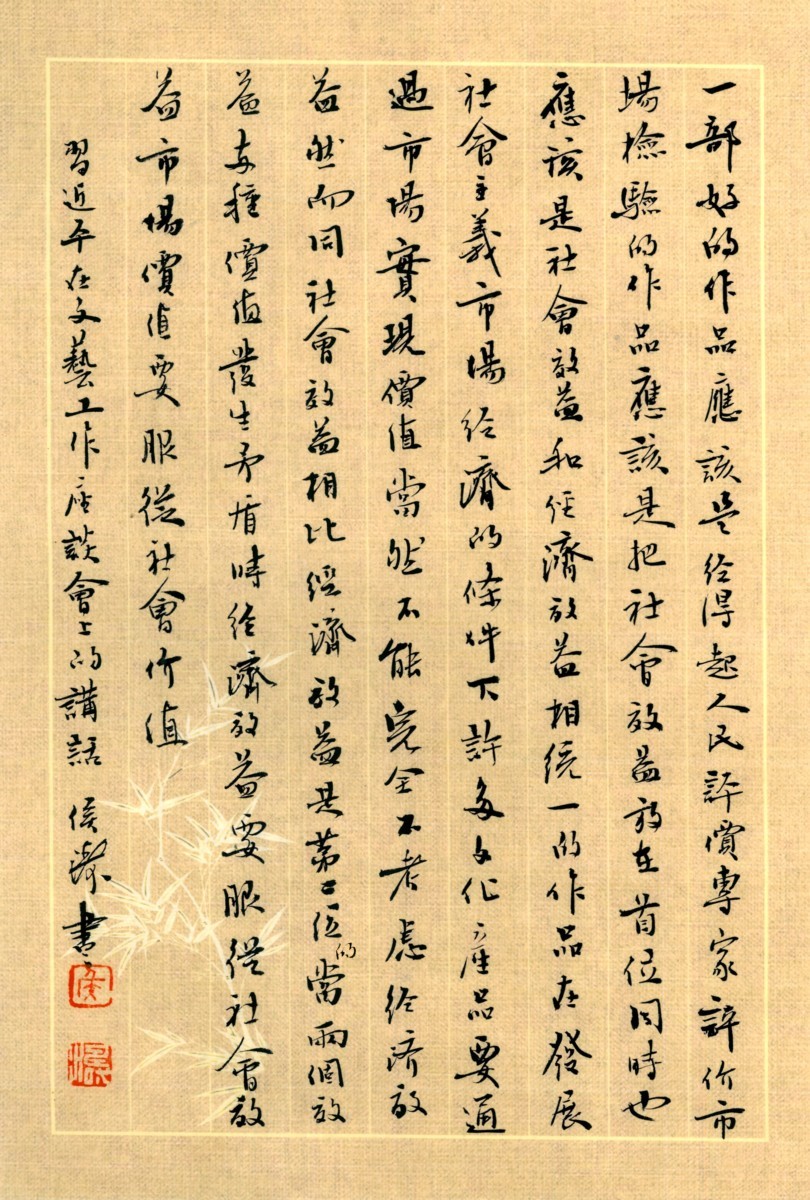 一部好的作品應該是经得起人民評價專家評价市
場檢驗的作品應該是把社會效益放在首位同時也
應該是社會效益和经濟效益相統一的作品在發展
社會主義市場经濟的條件下許多文化產品要通
過市場實現價值當然不能完全不考慮经济效
益然而同社會效益相比经濟效益是第二位的當兩個效
益两種價值發生矛盾時经濟效益要服從社會效
益市場價值要服從社會价值
習近平在文藝工作座談會上的講話 侯書
侯